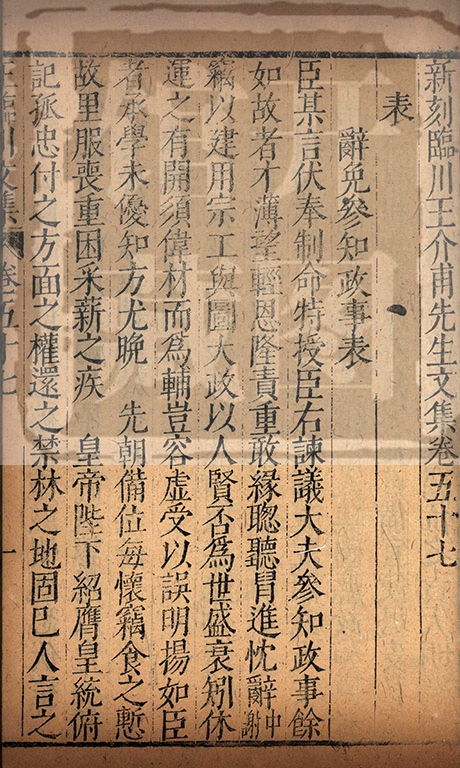 新刻臨川王介甫先生文集卷五十七
表
辭免參知政事表
臣某言伏奉制命特授臣右諫議大夫參知政事餘
如故者才薄望輕恩隆責重敢緣聦聽冐進忱辭中謝
竊以建用宗工與圖大政以人賢否為世盛衰矧休
運之有開須偉材而為輔豈容虚受以誤明揚如臣
者承學未優知方尤晚 先朝備位每懷竊食之慙
故里服喪重困采薪之疾 皇帝陛下紹膺皇統俯
記孤忠付之方面之權還之禁林之地固已人言之
王臨川文集 卷五十七 一